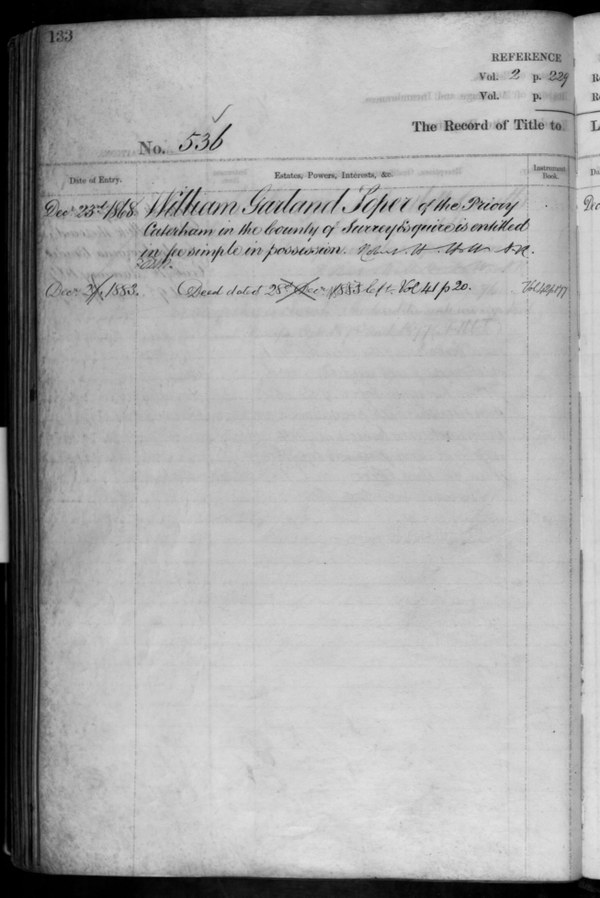 133
REFERENCE
Vol. 2 p. 229
Vol. p.
The Record of Title to
No. 536
Date of Entry.
Estates, Powers, Interests, &c.
Instrument Book.
Decr 23rd 1868 William Garland Soper of the Priory
Caterham in the County of Surrey Esquire is entitled
in fee simple in possession.
Decr 1883. Deed dated 28th Decr 1883 left Vol 41 p 20.